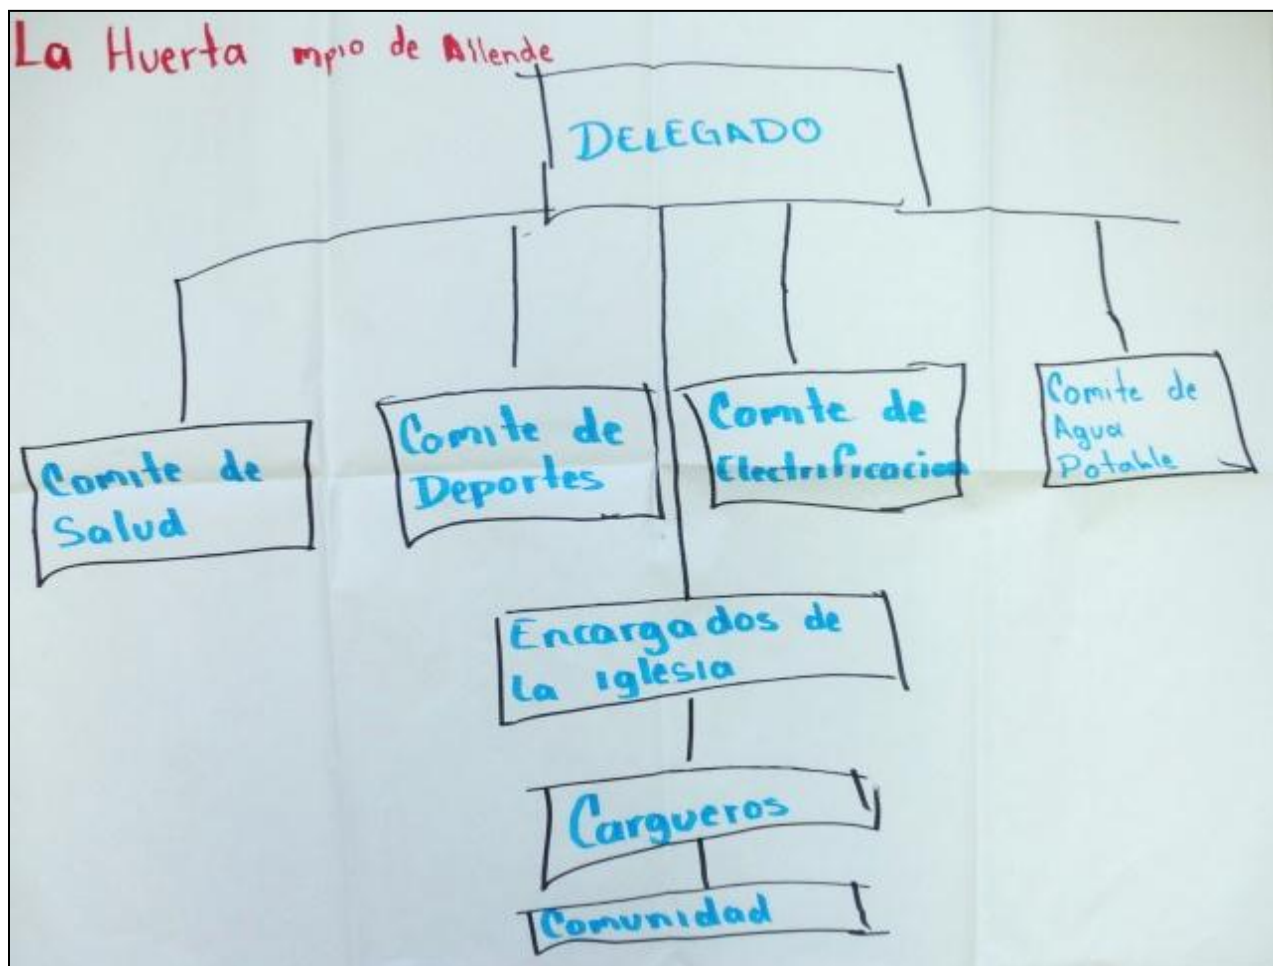 La Huerta mpio de Allende
DELEGADO
Comite de
Salud
Comite de
Deportes
Comite de
Electrificacion
Comite de
Agua
Potable
Encargados de
La iglesia
Cargueros
Comunidad